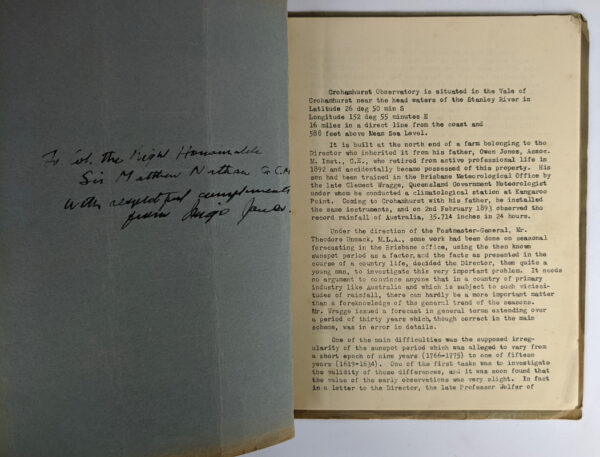 To Wl. the Right Honourable
Sir Matthew Nathan G.C.M.
with respectful compliments
from Inigo Jones.
Crohamhurst Observatory is situated in the Vale of
Crohamhurst near the head waters of the Stanley River in
Latitude 26 deg 50 min S
Longitude 152 deg 55 minutes E
16 miles in a direct line from the coast and
588 feet above Mean Sea Level.
It is built at the north end of a farm belonging to the
Director who inherited it from his father, Owen Jones, Assoc.
M. Inst., C.E., who retired from active professional life in
1892 and accidentally became possessed of this property. His
son had been trained in the Brisbane Meteorological Office by
the late Clement Wragge, Queensland Government Meteorologist
under whom he conducted a climatological station at Kangaroo
Point. Coming to Crohamhurst with his father, he installed
the same instruments, and on 2nd February 1893 observed the
record rainfall of Australia, 35.714 inches in 24 hours.
Under the direction of the Postmaster-General, Mr.
Theodore Unmack, M.L.A., some work had been done on seasonal
forecasting in the Brisbane office, using the then known
sunspot period as a factor, and the facts as presented in the
course of a country life, decided the Director, then quite a
young man, to investigate this very important problem. It needs
no argument to convince anyone that in a country of primary
industry like Australia and which is subject to such vicissi-
tudes of rainfall, there can hardly be a more important matter
than a foreknowledge of the general trend of the seasons.
Mr. Wragge issued a forecast in general terms extending over
a period of thirty years which, though correct in the main
scheme, was in error in details.
One of the main difficulties was the supposed irreg-
ularity of the sunspot period which was alleged to vary from
a short epoch of nine years (1766-1775) to one of fifteen
years (1619-1634). One of the first tasks was to investigate
the validity of these differences, and it was soon found that
the value of the early observations was very slight. In fact
in a letter to the Director, the late Professor Wolfer of